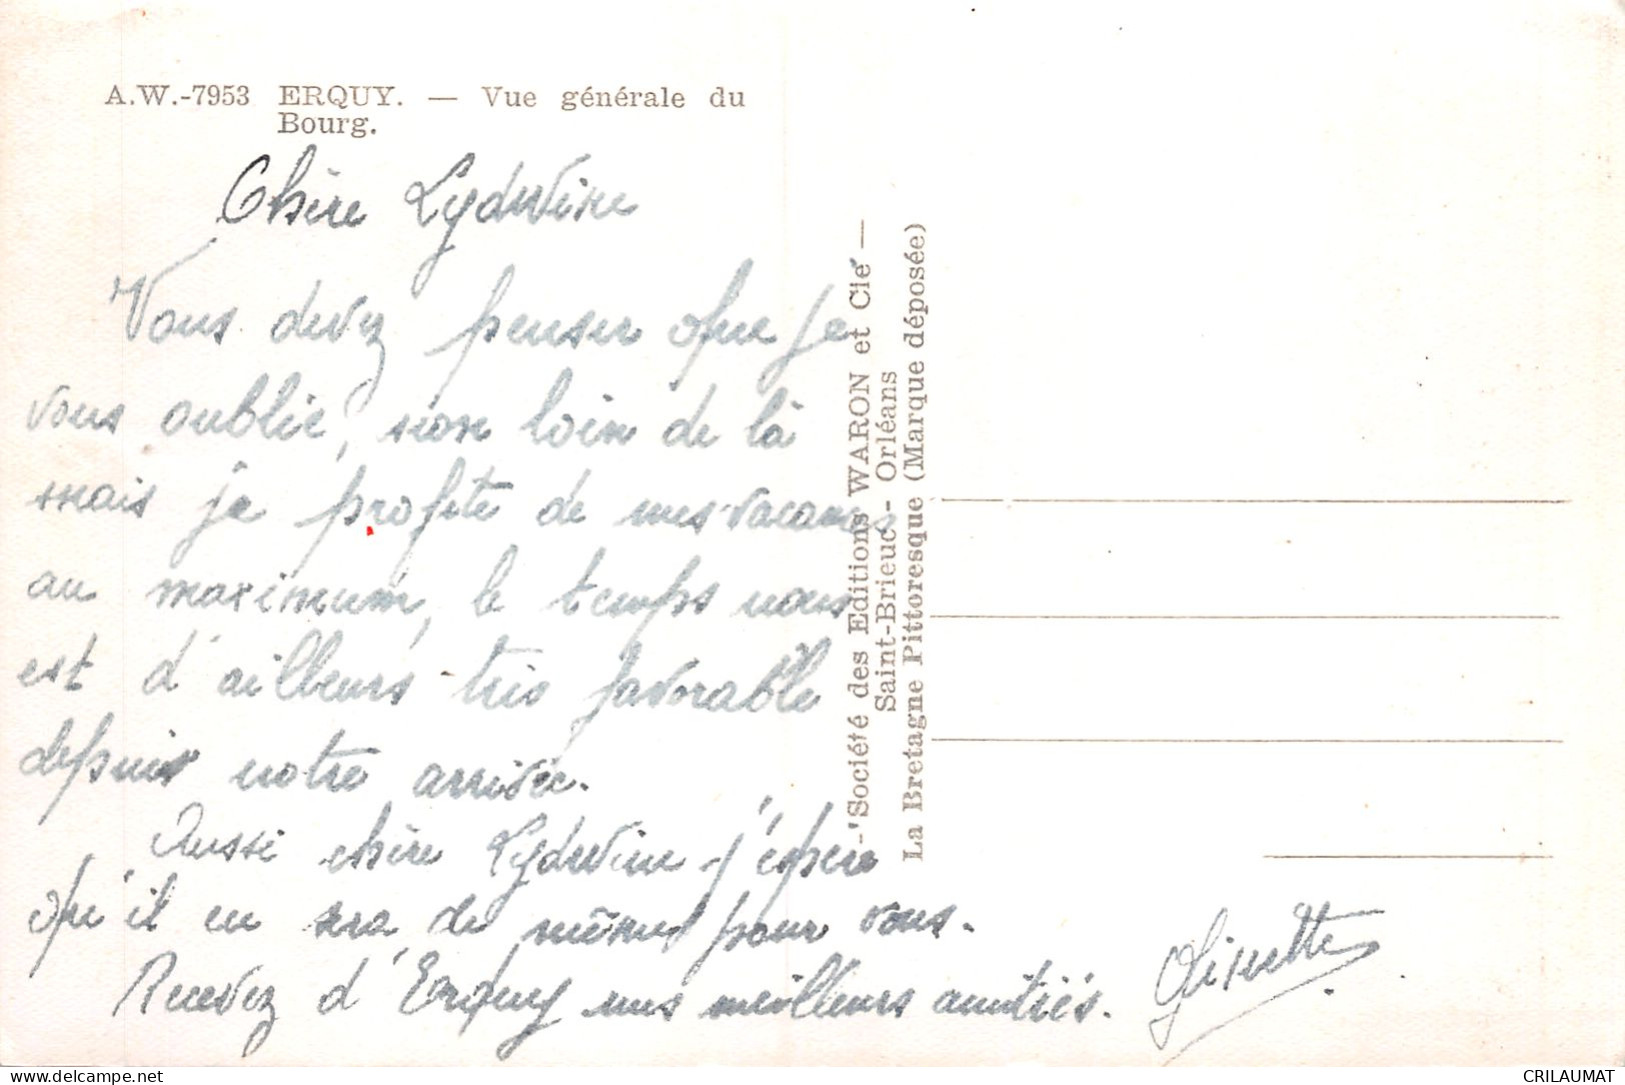 A.W.-7953 ERQUY. — Vue générale du
Bourg.
Chère Lydwine
Vous devez penser que je
vous oublie, non loin de là
mais je profite de mes vacances
au maximum, le temps nous
est d'ailleurs très favorable
depuis notre arrivée.
Aussi chère Lydwine j'espère
qu'il en sera de même pour vous.
Recevez d'Erquy mes meilleurs amitiés.
-'Société des Editions WARON et Cie —
Saint-Brieuc - Orléans
La Bretagne Pittoresque (Marque déposée)
www.delcampe.net
CRILAUMAT